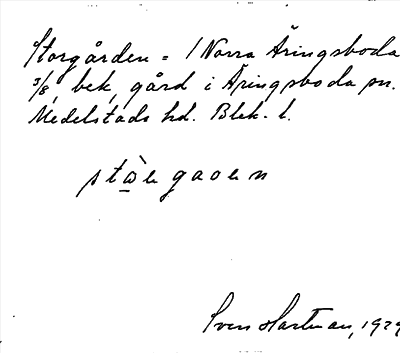 Storgården = 1 Norra Äringsboda
3/8, bek, gård i Äringsboda sn.
Medelstads hd. Blek. l.
stὼ̲ʀ gaoʀn
Sven Hartman, 1929